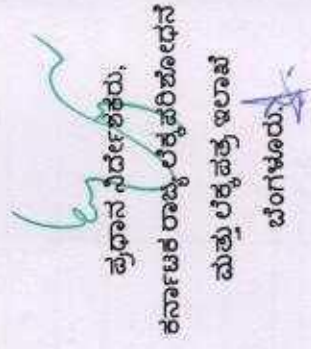 ಪ್ರಧಾನ ನಿರ್ದೇಶಕರು,
ಕರ್ನಾಟಕ ರಾಜ್ಯ ಲೆಕ್ಕಪರಿಶೋಧನೆ
ಮತ್ತು ಲೆಕ್ಕಪತ್ರ ಇಲಾಖೆ
ಬೆಂಗಳೂರು.